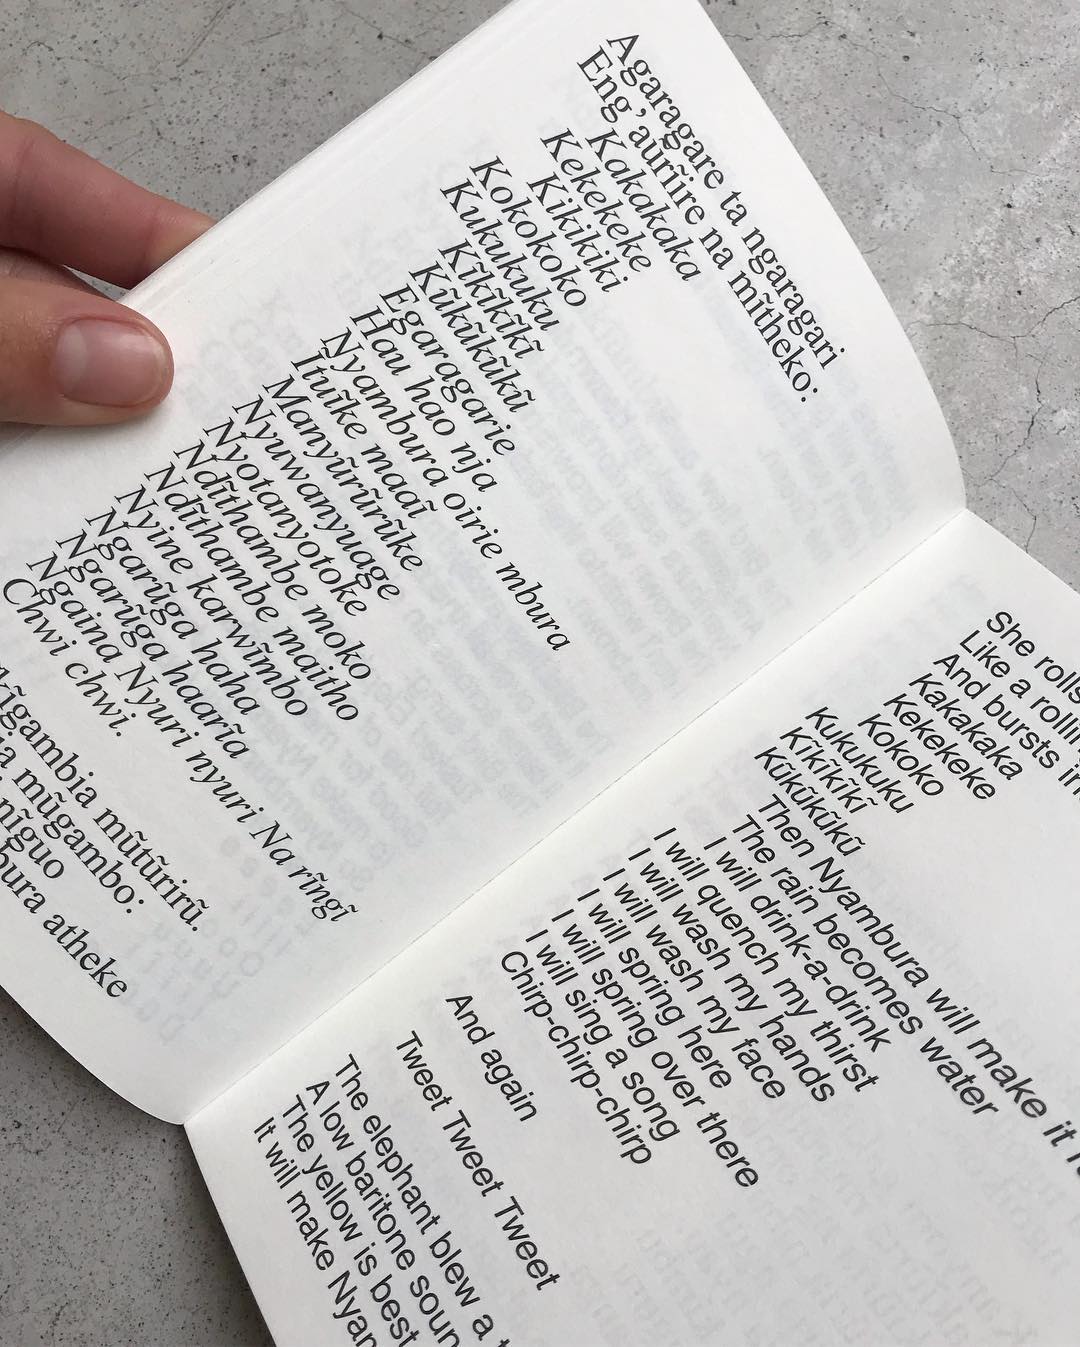 Agaragare ta ngaragari
Eng'aũrĩire na mĩtheko:
Kakakaka
Kekekeke
Kikikiki
Kokokoko
Kukukuku
Kĩkĩkĩkĩ
Kũkũkũkũ
Egaragarie
Hau hao nja
Nyambura oirie mbura
Ĩtuĩke maaĩ
Manyũrũrĩke
Nyuwanyuage
Nyotanyotoke
Ndĩthambe moko
Ndĩthambe maitho
Nyine karwĩmbo
Ngarũga haha
Ngarũga haarĩa
Ngaina Nyuri nyuri Na rĩngĩ
Chwi chwi.
mũtũrirũ.
mũgambo:
nĩguo
atheke
She rolls
Like a
And bursts
Kakakaka
Kekekeke
Kokoko
Kukukuku
Kĩkĩkĩkĩ
Kũkũkũkũ
Then Nyambura will make it
The rain becomes water
I will drink-a-drink
I will quench my thirst
I will wash my hands
I will wash my face
I will spring here
I will spring over there
I will sing a song
Chirp-chirp-chirp
And again
Tweet Tweet Tweet
The elephant blew a
A low baritone
The yellow is best
It will make